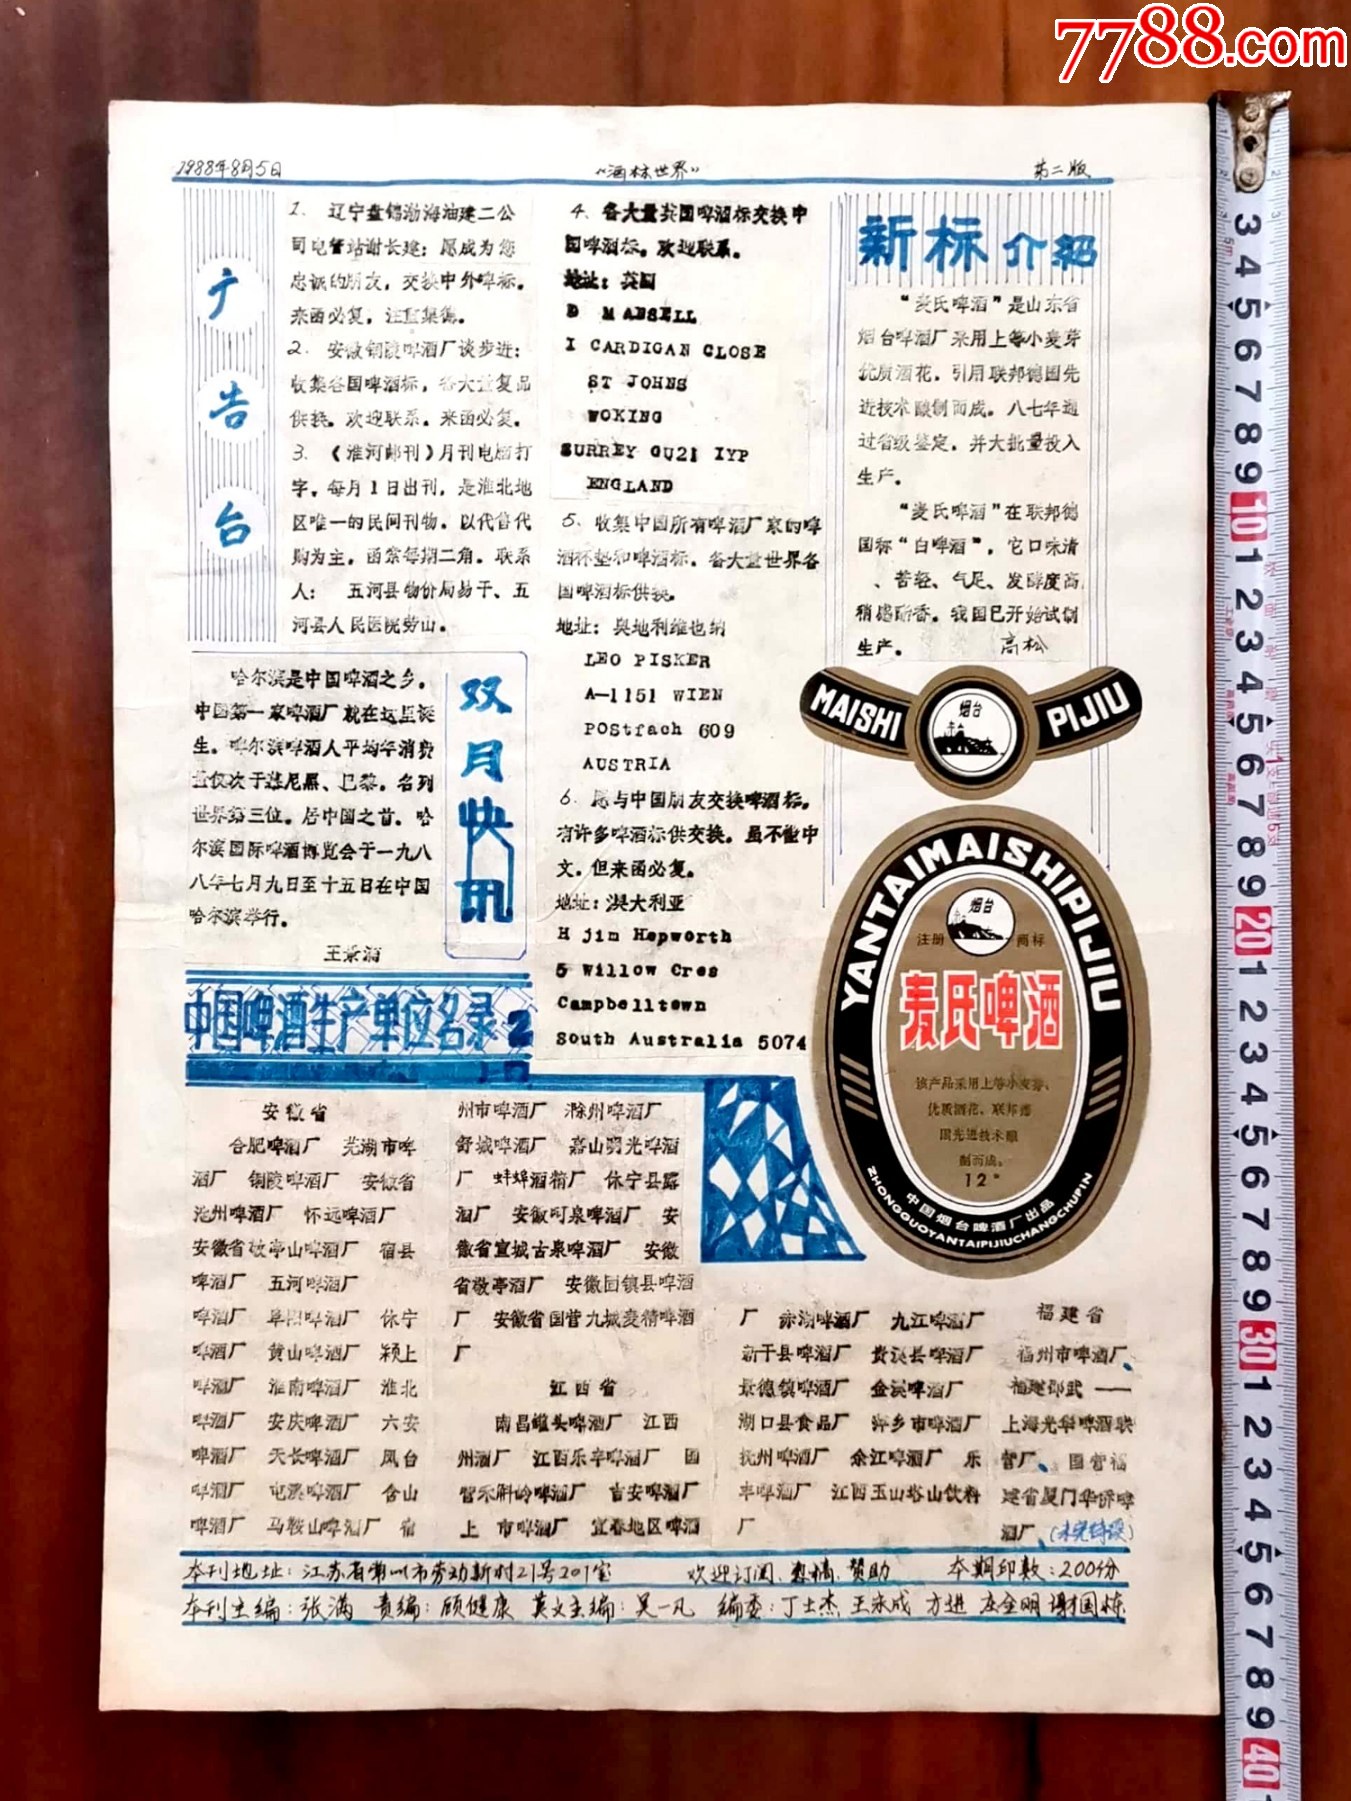 7788.com
1988年8月5日
“酒林世界”
第二版
广告台
1. 辽宁盘锦渤海油建二公
司电管站谢长建：愿成为您
忠诚的朋友，交换中外啤标。
来函必复，注重集德。
2. 安徽铜陵啤酒厂谈步进：
收集各国啤酒标，备大量复品
供换。欢迎联系。来函必复。
3. 《淮河邮刊》月刊电脑打
字。每月1日出刊，是淮北地
区唯一的民间刊物。以代售代
购为主，函索每期二角。联系
人： 五河县物价局易干、五
河县人民医院劳山。
4. 备大量英国啤酒标交换中
国啤酒标。欢迎联系。
地址：英国
D MANSELL
I CARDIGAN CLOSE
ST JOHNS
WOKING
SURREY GU21 IYP
ENGLAND
5. 收集中国所有啤酒厂家的啤
酒杯垫和啤酒标。备大量世界各
国啤酒标供换。
地址：奥地利维也纳
LEO PISKER
A-1151 WIEN
POstfach 609
AUSTRIA
6. 愿与中国朋友交换啤酒标。
有许多啤酒标供交换。虽不能中
文。但来函必复。
地址：澳大利亚
H jim Hepworth
5 Willow Cres
Campbelltown
South Australia 5074
新标介绍
“麦氏啤酒”是山东省
烟台啤酒厂采用上等小麦芽
优质酒花，引用联邦德国先
进技术酿制而成。八七年通
过省级鉴定，并大批量投入
生产。
“麦氏啤酒”在联邦德
国称“白啤酒”，它口味清
、苦轻、气足、发酵度高
稍感酯香。我国已开始试制
生产。 高松
MAISHI
烟台
PIJIU
YANTAIMAISHIPIJIU
烟台
注册 商标
麦氏啤酒
该产品采用上等小麦芽、
优质酒花、联邦德
国先进技术酿
制而成。
12°
中国烟台啤酒厂出品
ZHONGGUOYANTAIPIJIUCHANGCHUPIN
双月快讯
哈尔滨是中国啤酒之乡。
中国第一家啤酒厂就在这里诞
生。哈尔滨啤酒人平均年消费
量仅次于慕尼黑、巴黎。名列
世界第三位。居中国之首。哈
尔滨国际啤酒博览会于一九八
八年七月九日至十五日在中国
哈尔滨举行。
王景酒
中国啤酒生产单位名录2
安徽省
合肥啤酒厂 芜湖市啤
酒厂 铜陵啤酒厂 安徽省
池州啤酒厂 怀远啤酒厂
安徽省敬亭山啤酒厂 宿县
啤酒厂 五河啤酒厂
啤酒厂 阜阳啤酒厂 休宁
啤酒厂 黄山啤酒厂 颍上
啤酒厂 淮南啤酒厂 淮北
啤酒厂 安庆啤酒厂 六安
啤酒厂 天长啤酒厂 凤台
啤酒厂 屯溪啤酒厂 含山
啤酒厂 马鞍山啤酒厂 宿
州市啤酒厂 滁州啤酒厂
舒城啤酒厂 嘉山明光啤酒
厂 蚌埠酒精厂 休宁县露
酒厂 安徽呵泉啤酒厂 安
徽省宣城古泉啤酒厂 安徽
省敬亭酒厂 安徽固镇县啤酒
厂 安徽省国营九城麦精啤酒
厂
江西省
南昌罐头啤酒厂 江西
州酒厂 江西乐平啤酒厂 国
营禾斛岭啤酒厂 吉安啤酒厂
上 市啤酒厂 宜春地区啤酒
厂 赤湖啤酒厂 九江啤酒厂
新干县啤酒厂 贵溪县啤酒厂
景德镇啤酒厂 金溪啤酒厂
湖口县食品厂 萍乡市啤酒厂
抚州啤酒厂 余江啤酒厂 乐
丰啤酒厂 江西玉山塔山饮料
厂
福建省
福州市啤酒厂、
福建邵武——
上海光华啤酒联
营厂、 国营福
建省厦门华侨啤
酒厂、（未完待续）
本刊地址：江苏省常州市劳动新村21号201室 欢迎订阅、惠稿、赞助 本期印数：200份
本刊主编：张满 责编：顾健康 英文主编：吴一凡 编委：丁士杰 王永成 方进 庄全明 谢国栋